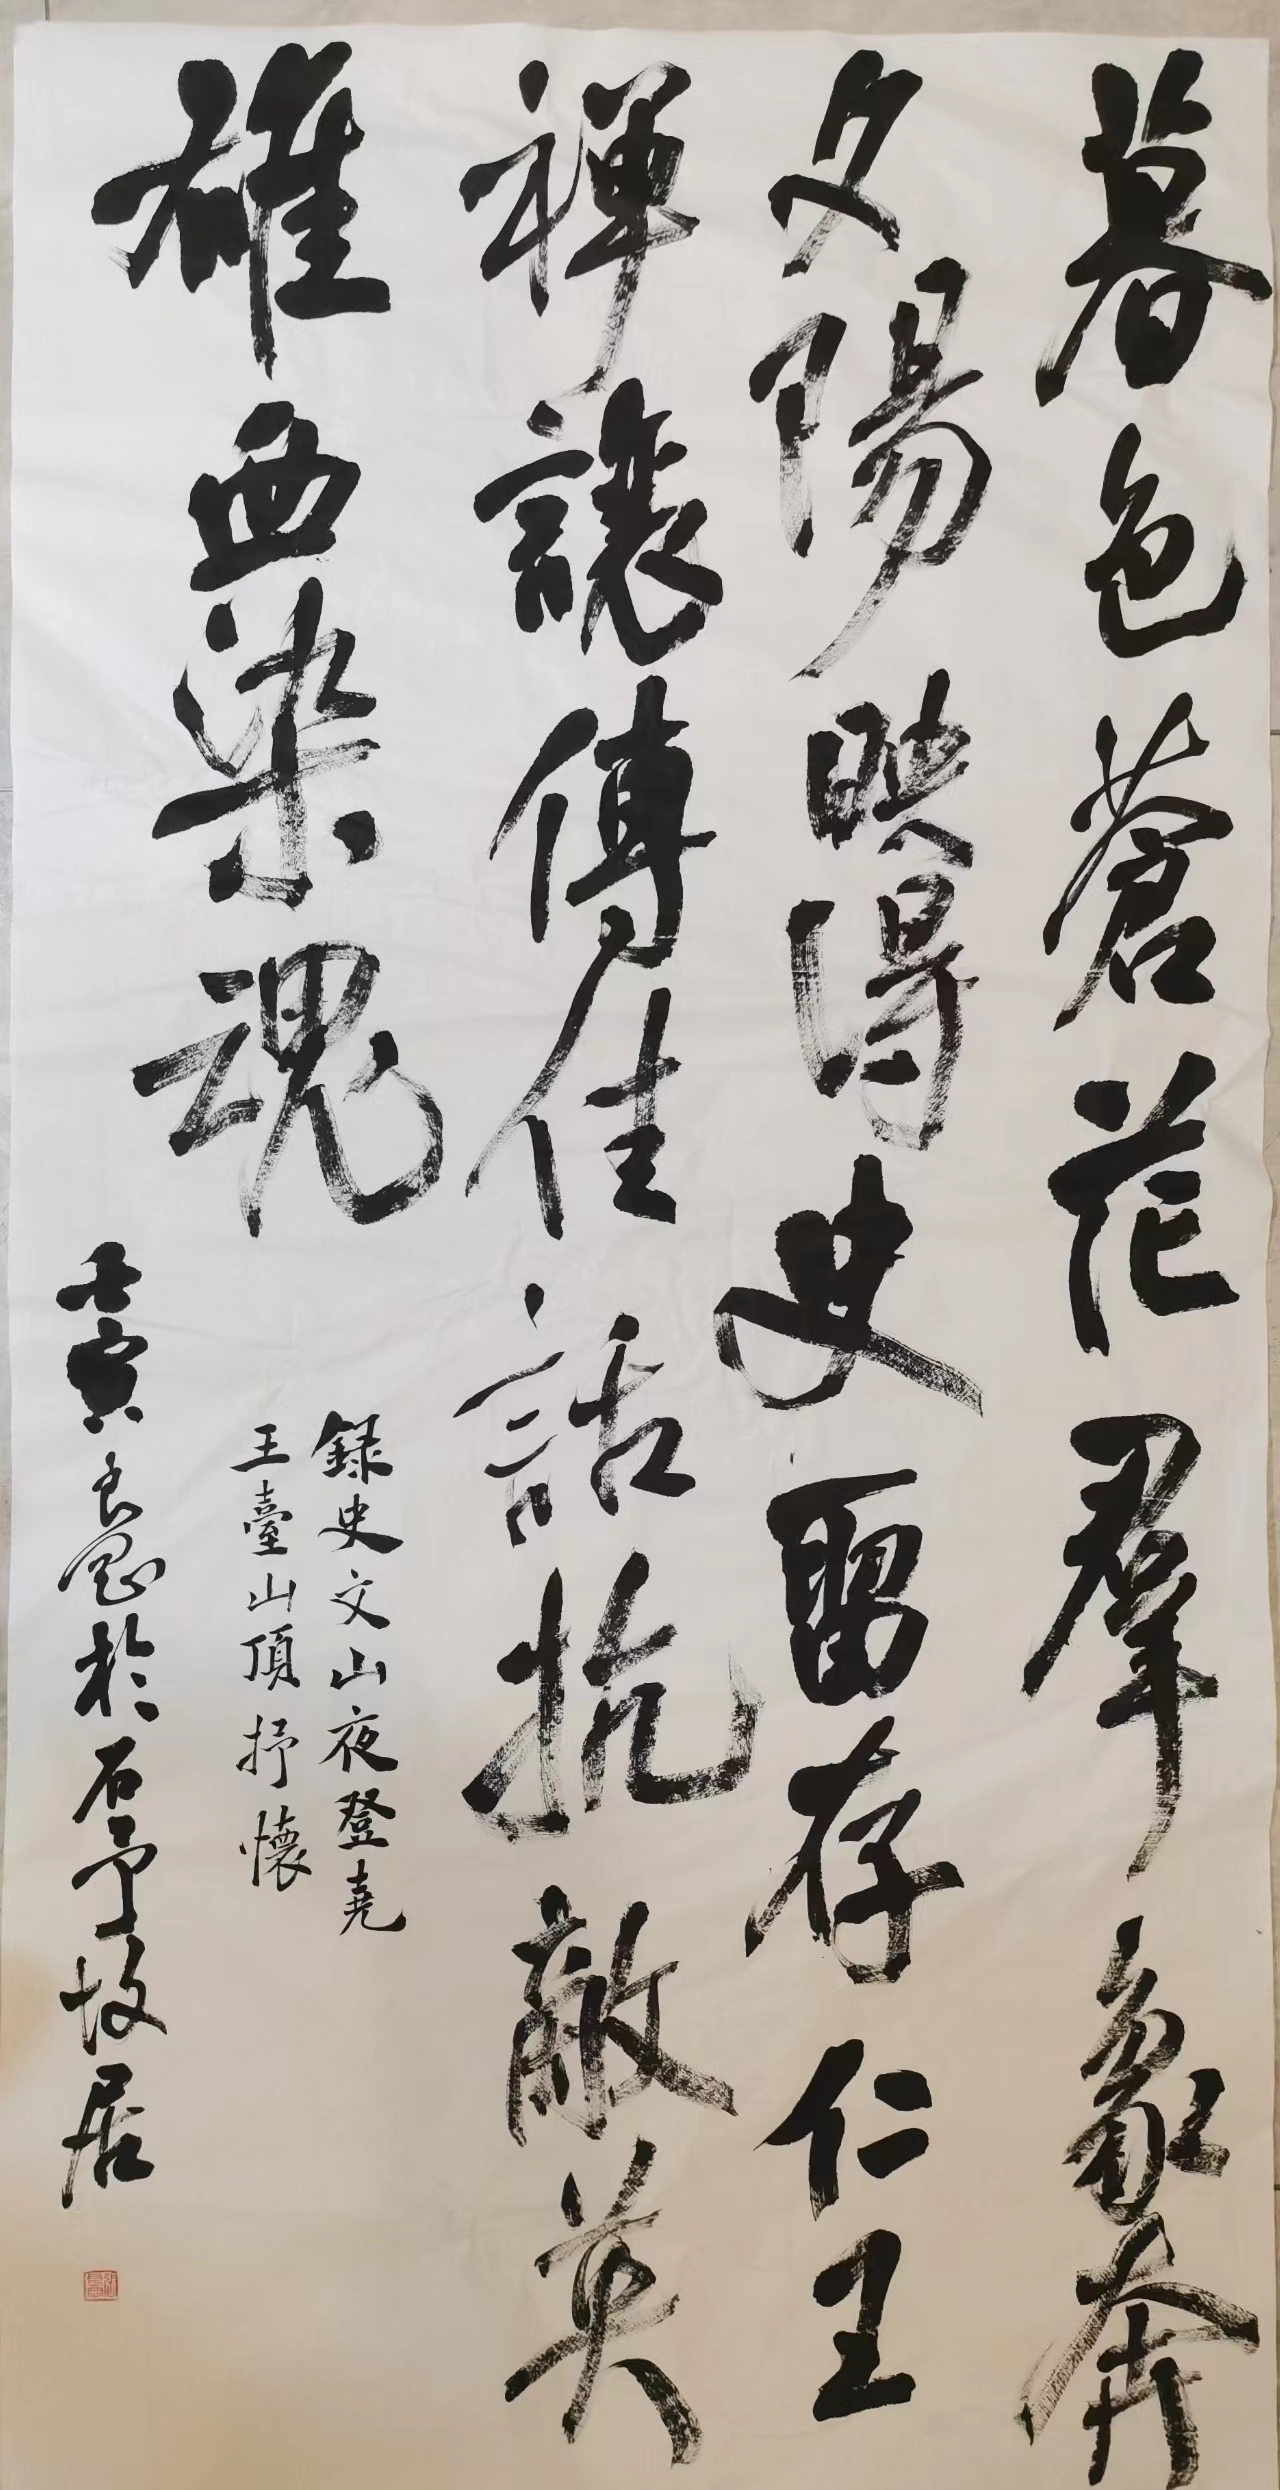 暮色蒼茫羣象奔
夕陽映得史留存仁王
禪讓傳佳話抗敵英
雄血染魂
錄史文山夜登堯
王臺山頂抒懷
壬寅良墨於石予故居